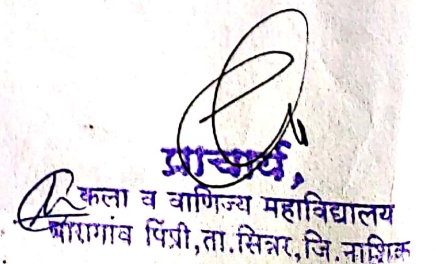 प्राचार्य,
कला व वाणिज्य महाविद्यालय
बारागांव पिंप्री,ता.सिन्नर,जि.नाशिक